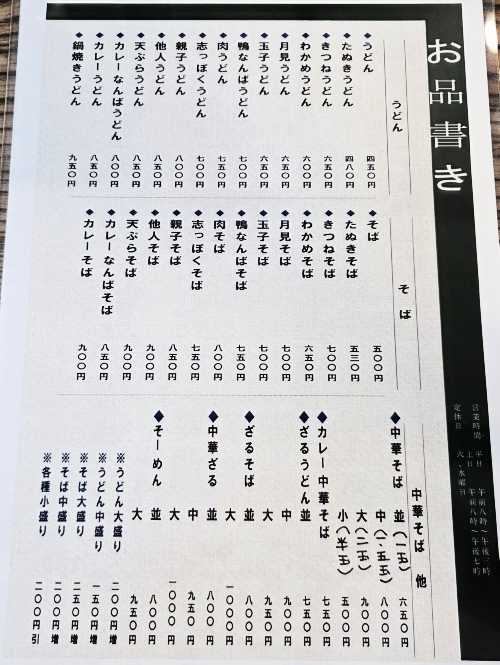 お品書き
営業時間 平日 午前八時~午後三時
土日 午前八時~午後七時
定休日 火、水曜日
うどん
◆うどん 四五〇円
◆たぬきうどん 四八〇円
◆きつねうどん 六五〇円
◆わかめうどん 六〇〇円
◆月見うどん 六五〇円
◆玉子うどん 六五〇円
◆鴨なんばうどん 七五〇円
◆肉うどん 七五〇円
◆志っぽくうどん 七〇〇円
◆親子うどん 八〇〇円
◆他人うどん 八五〇円
◆天ぷらうどん 八五〇円
◆カレーなんばうどん 八〇〇円
◆カレーうどん 八五〇円
◆鍋焼きうどん 九五〇円
そば
◆そば 五〇〇円
◆たぬきそば 五三〇円
◆きつねそば 七〇〇円
◆わかめそば 六五〇円
◆月見そば 七〇〇円
◆玉子そば 七〇〇円
◆鴨なんばそば 七五〇円
◆肉そば 八〇〇円
◆志っぽくそば 七五〇円
◆親子そば 八五〇円
◆他人そば 九〇〇円
◆天ぷらそば 九〇〇円
◆カレーなんばそば 八五〇円
◆カレーそば 九〇〇円
中華そば 他
◆中華そば 並(一玉) 六五〇円
中(一、五玉) 八〇〇円
大(二玉) 九〇〇円
小(半玉) 五〇〇円
◆カレー中華そば 七五〇円
◆ざるうどん 並 七五〇円
中 九〇〇円
大 七五〇円
◆ざるそば 並 八〇〇円
大 一〇〇〇円
◆中華ざる 並 八〇〇円
中 九五〇円
大 一〇〇〇円
◆そーめん 並 八〇〇円
大 九五〇円
※うどん大盛り 二〇〇円増
※うどん中盛り 一五〇円増
※そば大盛り 二五〇円増
※そば中盛り 二〇〇円増
※各種小盛り 二〇〇円引